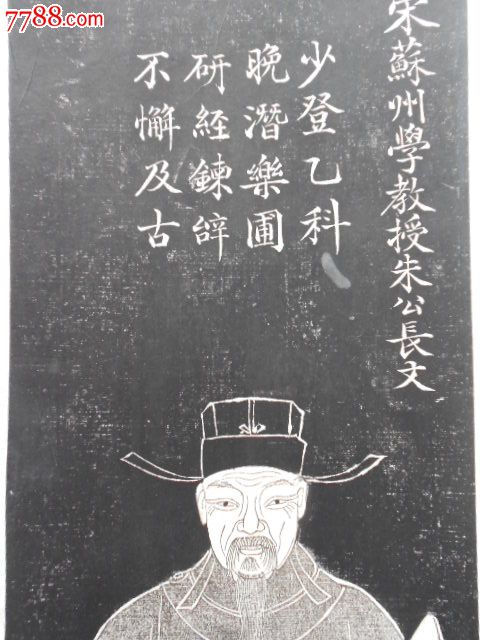 7788.com
宋蘇州學教授朱公長文
少登乙科
晚潛樂圃
研經鍊辭
不懈及古